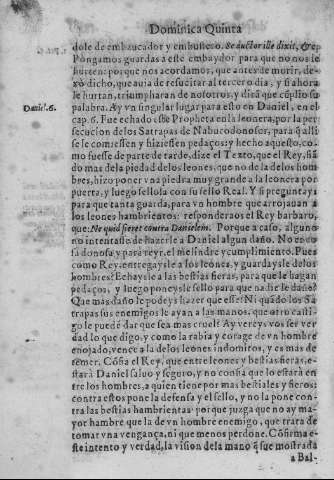 Dominica Quinta
dole de embaucador y embustero. Seductor ille dixit, &c.
Pongamos guardas a este embaydor para que no nos le
hurten: porque nos acordamos, que antes de morir, de-
xò dicho, que auia de resucitar al tercero dia, y si ahora
le hurtan, triumpharan de nosotros, y dirã que cũplio su
Daniel. 6.
palabra. Ay vn singular lugar para esto en Daniel, en el
cap. 6. Fue echado este Propheta en la leonera, por la per-
secucion delos Satrapas de Nabucodonosor, para q̃ alli
se le comiessen y hiziessen pedaços; y hecho aquesto, co-
mo fuesse de parte de tarde, dize el Texto, que el Rey, fiã-
do mas dela piedad delos leones, que no de la delos hom
bres, hizo poner vna piedra muy grande a la leonera por
puerta, y luego sellola con su sello Real. Y si preguntays
para que tanta guarda, para vn hombre que arrojauan a
los leones hambrientos: responderaos el Rey barbaro,
que: Ne quid fieret contra Danielem. Porque a caso, alguno
no intentasse de hazerle a Daniel algun daño. No en
sa donosa, y para reyr, el melindre y cumplimiento. Pues
como Rey, entregaysle a los leones, y guardaysle delos
hombres? Echaysle a las bestias fieras, para que le hagan
pedaços, y luego poneysle sello para que nadie le dañe?
Que mas daño le podeys hazer que esse? Ni quãdo los Sa
trapas sus enemigos le ayan a las manos, que otro casti-
go le puedẽ dar que sea mas cruel? Ay vereys vos ser ver
dad lo que digo, y como la rabia y corage de vn hombre
enojado, vence a la delos leones indomitos, y es mas de
temer. Cõfia el Rey, que entre leones y bestias fieras, es-
tarà Daniel saluo y seguro, y no confia que lo estarà en
tre los hombres, a quien tiene por mas bestiales y fieros:
contra estos pone la defensa y el sello, y no la pone con-
tra las bestias hambrientas: porque juzga que no ay ma-
yor hambre que la de vn hombre enemigo, que trata de
tomar vna vengança, ni que menos perdone. Cõfirma e-
ste intento y verdad, la vision dela mano q̃ fue mostrada
a Bal-